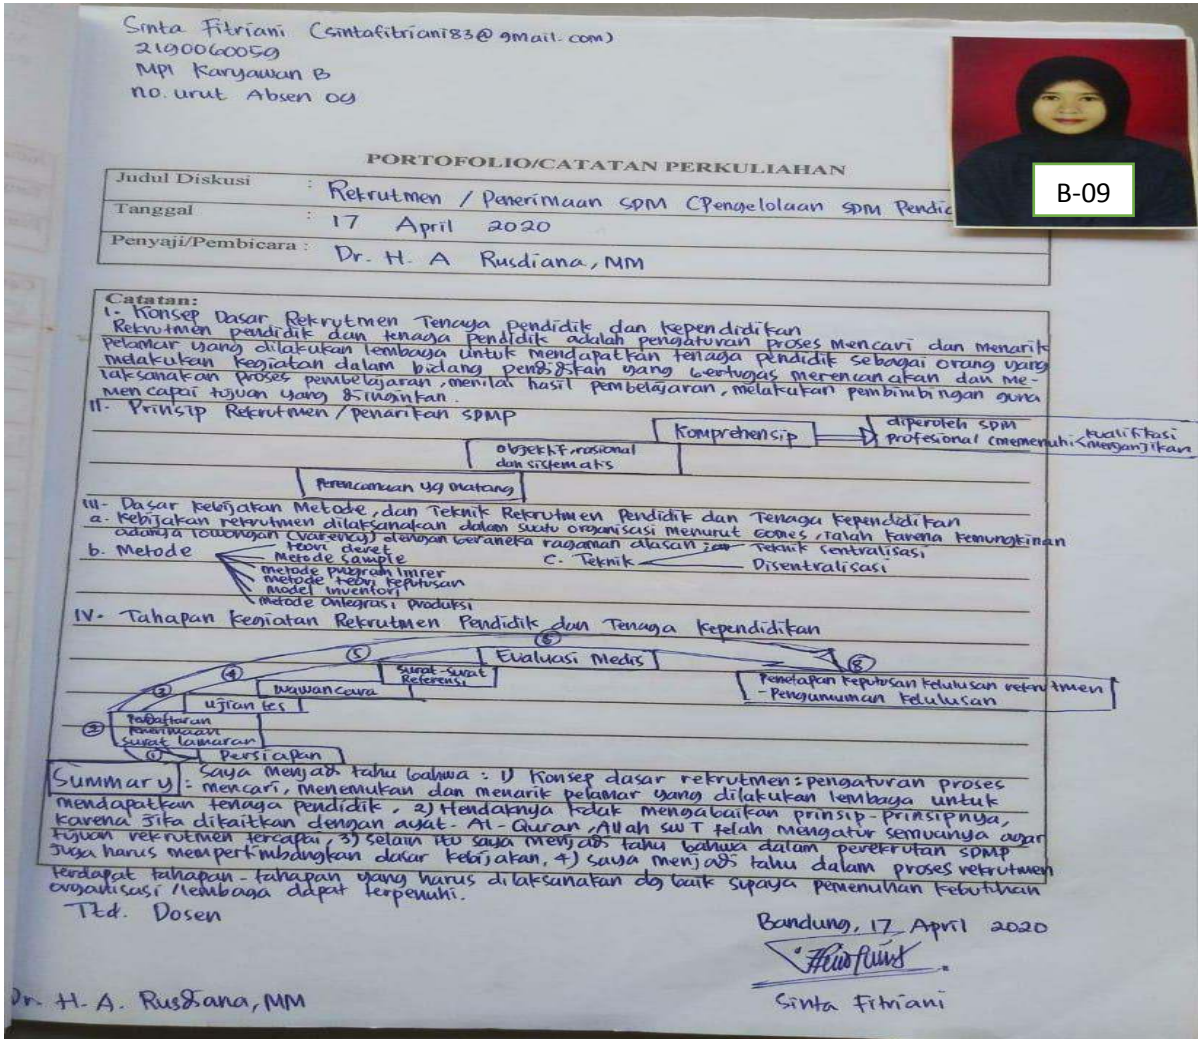 Sinta Fitriani (sintafitriani83@gmail.com)
2190060059
MPI Karyawan B
no. urut Absen 09
B-09
PORTOFOLIO/CATATAN PERKULIAHAN
Judul Diskusi : Rekrutmen / Penerimaan SDM (Pengelolaan SDM Pendic
Tanggal : 17 April 2020
Penyaji/Pembicara : Dr. H. A Rusdiana, MM
Catatan:
I. Konsep Dasar Rekrutmen Tenaga Pendidik dan Kependidikan
Rekrutmen pendidik dan tenaga pendidik adalah pengaturan proses mencari dan menarik
pelamar yang dilakukan lembaga untuk mendapatkan tenaga pendidik sebagai orang yang
melakukan kegiatan dalam bidang pendidikan yang bertugas merencanakan dan me-
laksanakan proses pembelajaran, menilai hasil pembelajaran, melakukan pembimbingan guna
mencapai tujuan yang diinginkan.
II. Prinsip Rekrutmen / penarikan SDMP
Komprehensip
diperoleh SDM
profesional (memenuhi kualifikasi
menjanjikan
objektif, rasional
dan sistematis
Perencanaan yg matang
III- Dasar Kebijakan Metode, dan Teknik Rekrutmen Pendidik dan Tenaga Kependidikan
a. Kebijakan rekrutmen dilaksanakan dalam suatu organisasi menurut Gomes, ialah karena kemungkinan
adanya lowongan (varency) dengan beraneka ragaman alasan
b. Metode
teori deret
Metode sample
metode program
metode teori keputusan
model inventori
metode integrasi produksi
C. Teknik
Teknik sentralisasi
Disentralisasi
IV- Tahapan Kegiatan Rekrutmen Pendidik dan Tenaga Kependidikan
⑥
⑤ Evaluasi Medis ⑧
④ Surat-surat
Referensi
Penetapan Keputusan Kelulusan rekrutmen
- Pengumuman Kelulusan
③ wawancara
ujian tes
② Pendaftaran
Penerimaan
surat lamaran
① Persiapan
Summary : Saya menjadi tahu bahwa : 1) Konsep dasar rekrutmen : pengaturan proses
mencari, menemukan dan menarik pelamar yang dilakukan lembaga untuk
mendapatkan tenaga pendidik, 2) Hendaknya tidak mengabaikan prinsip-prinsipnya,
karena jika dikaitkan dengan ayat- Al-Quran, Allah SWT telah mengatur semuanya agar
tujuan rekrutmen tercapai, 3) selain itu saya menjadi tahu bahwa dalam perekrutan SDMP
juga harus mempertimbangkan dasar kebijakan, 4) saya menjadi tahu dalam proses rekrutmen
terdapat tahapan-tahapan yang harus dilaksanakan dg baik supaya pemenuhan kebutuhan
organisasi/lembaga dapat terpenuhi.
Ttd. Dosen
Bandung, 17 April 2020
Dr. H. A. Rusdiana, MM
Sinta Fitriani